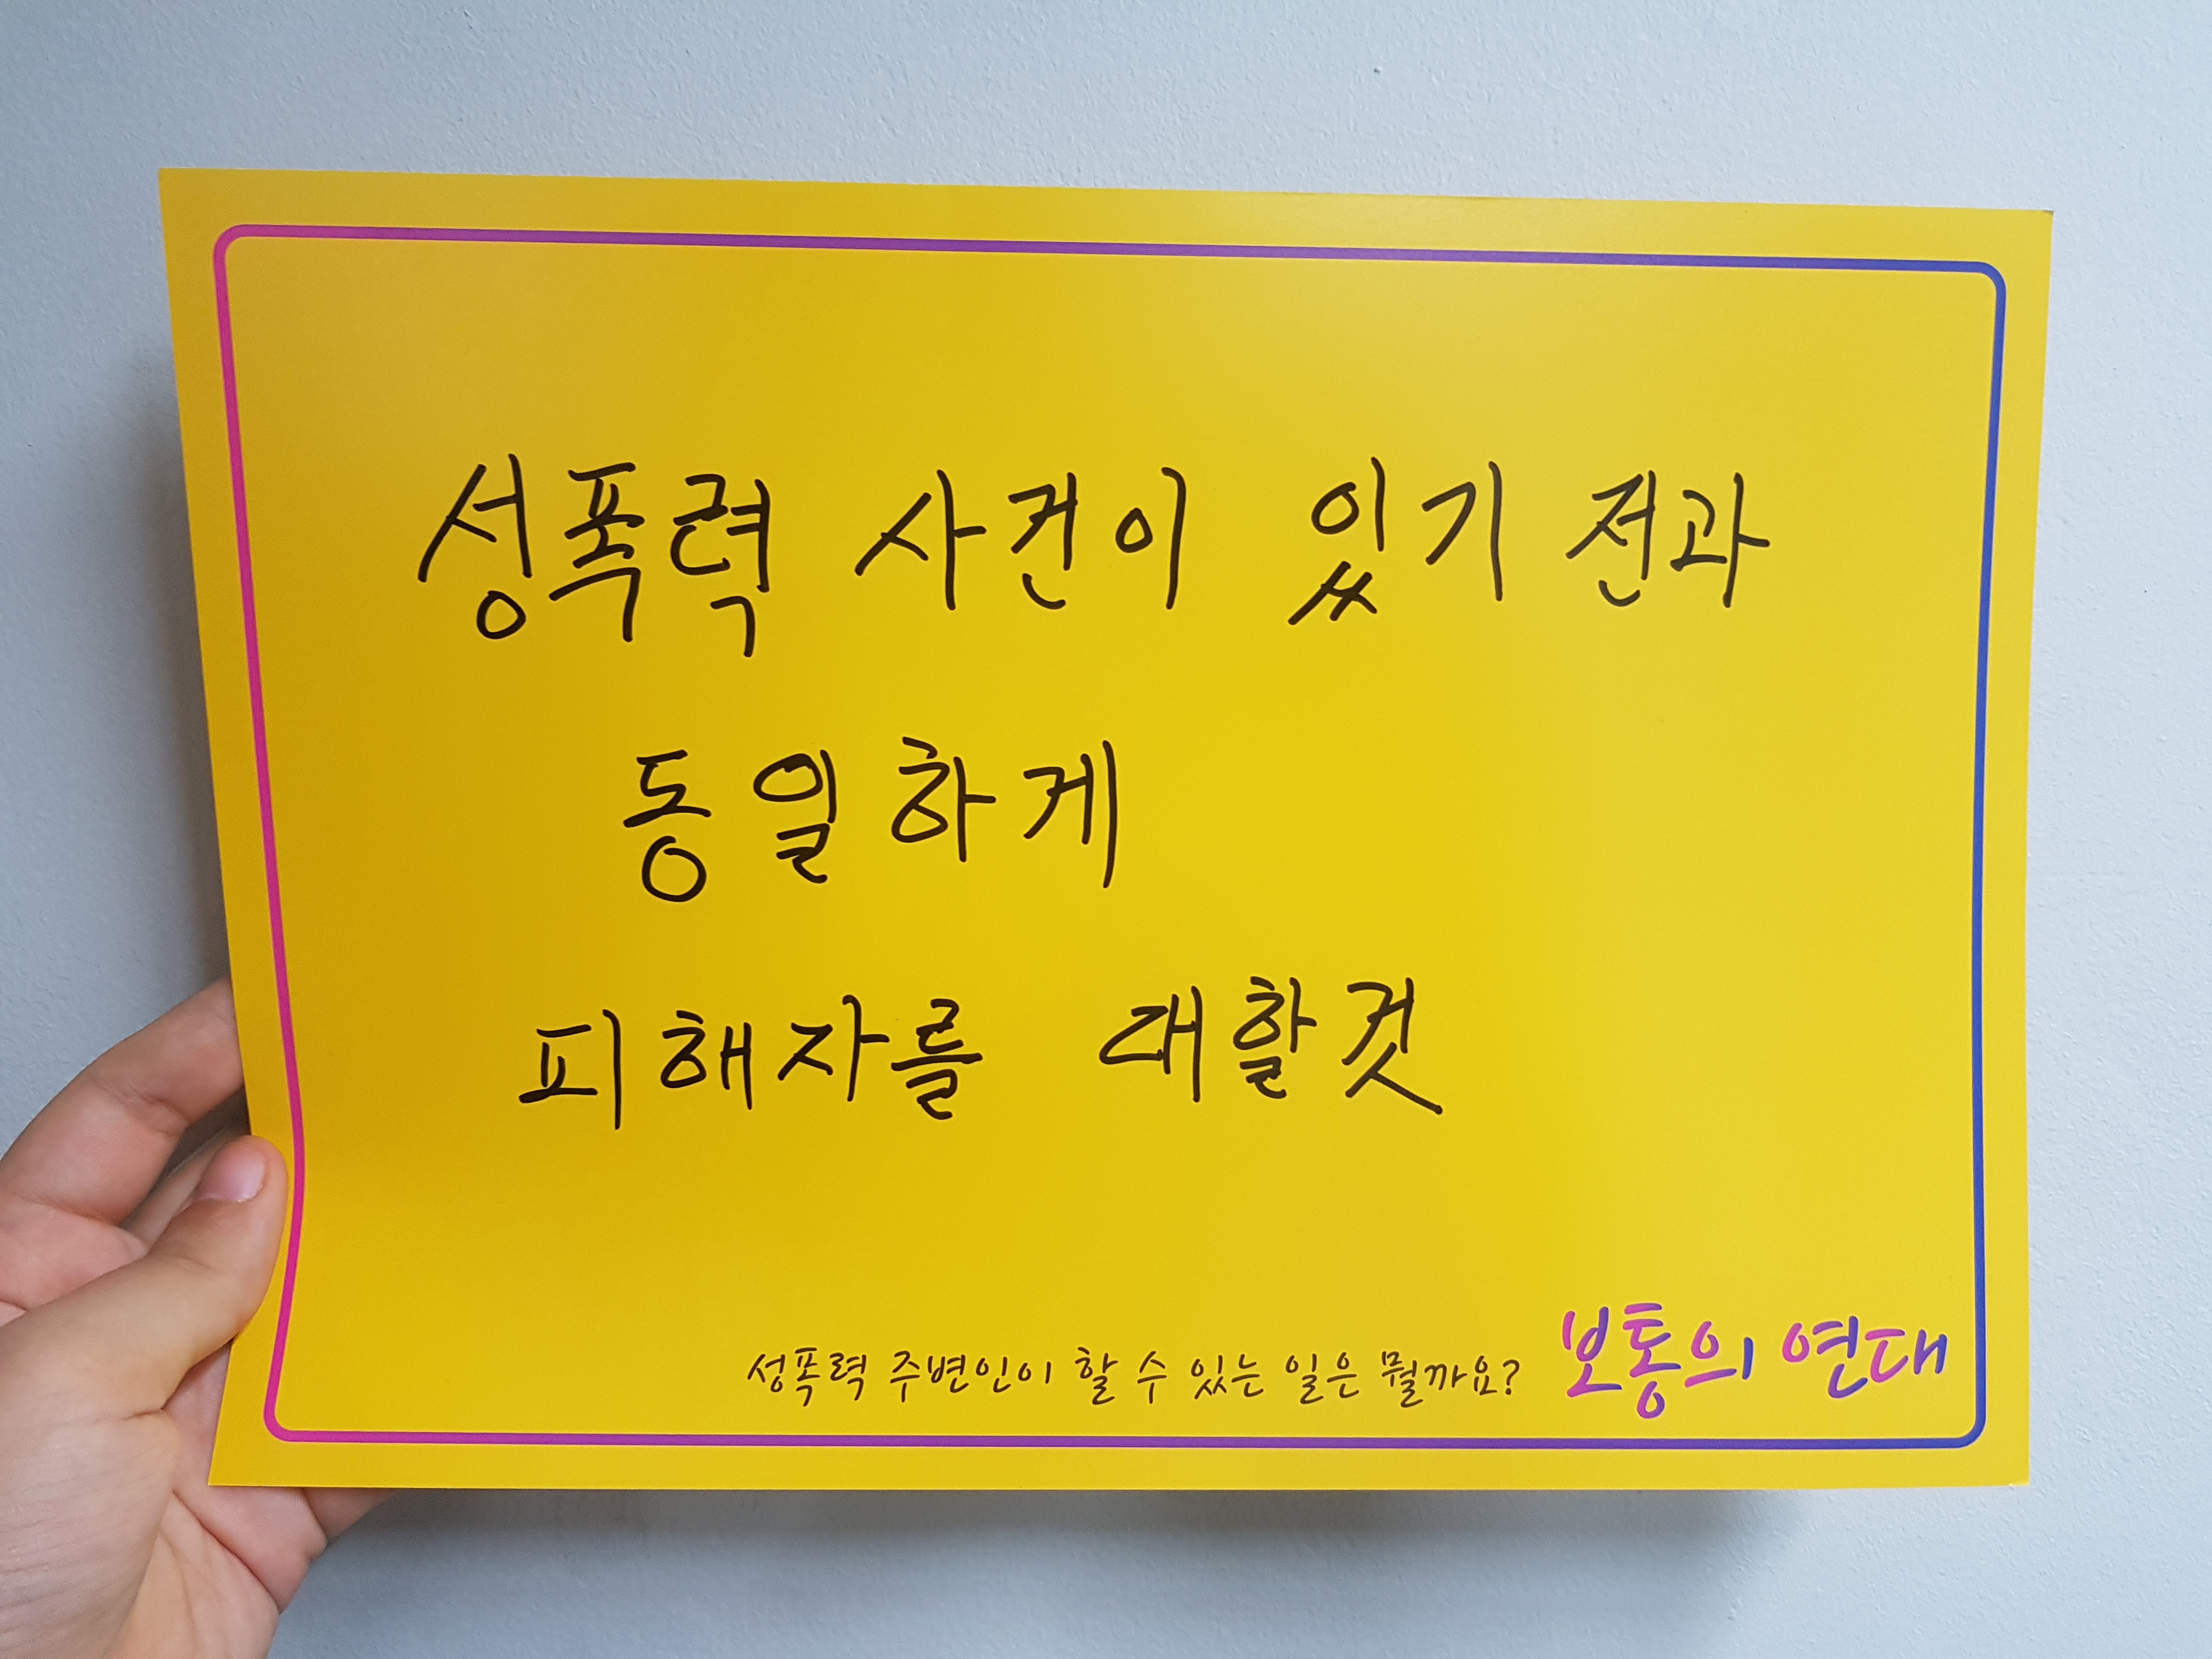 성폭력 사건이 있기 전과
동일하게
피해자를 대할것
성폭력 주변인이 할 수 있는 일은 뭘까요? 보통의 연대